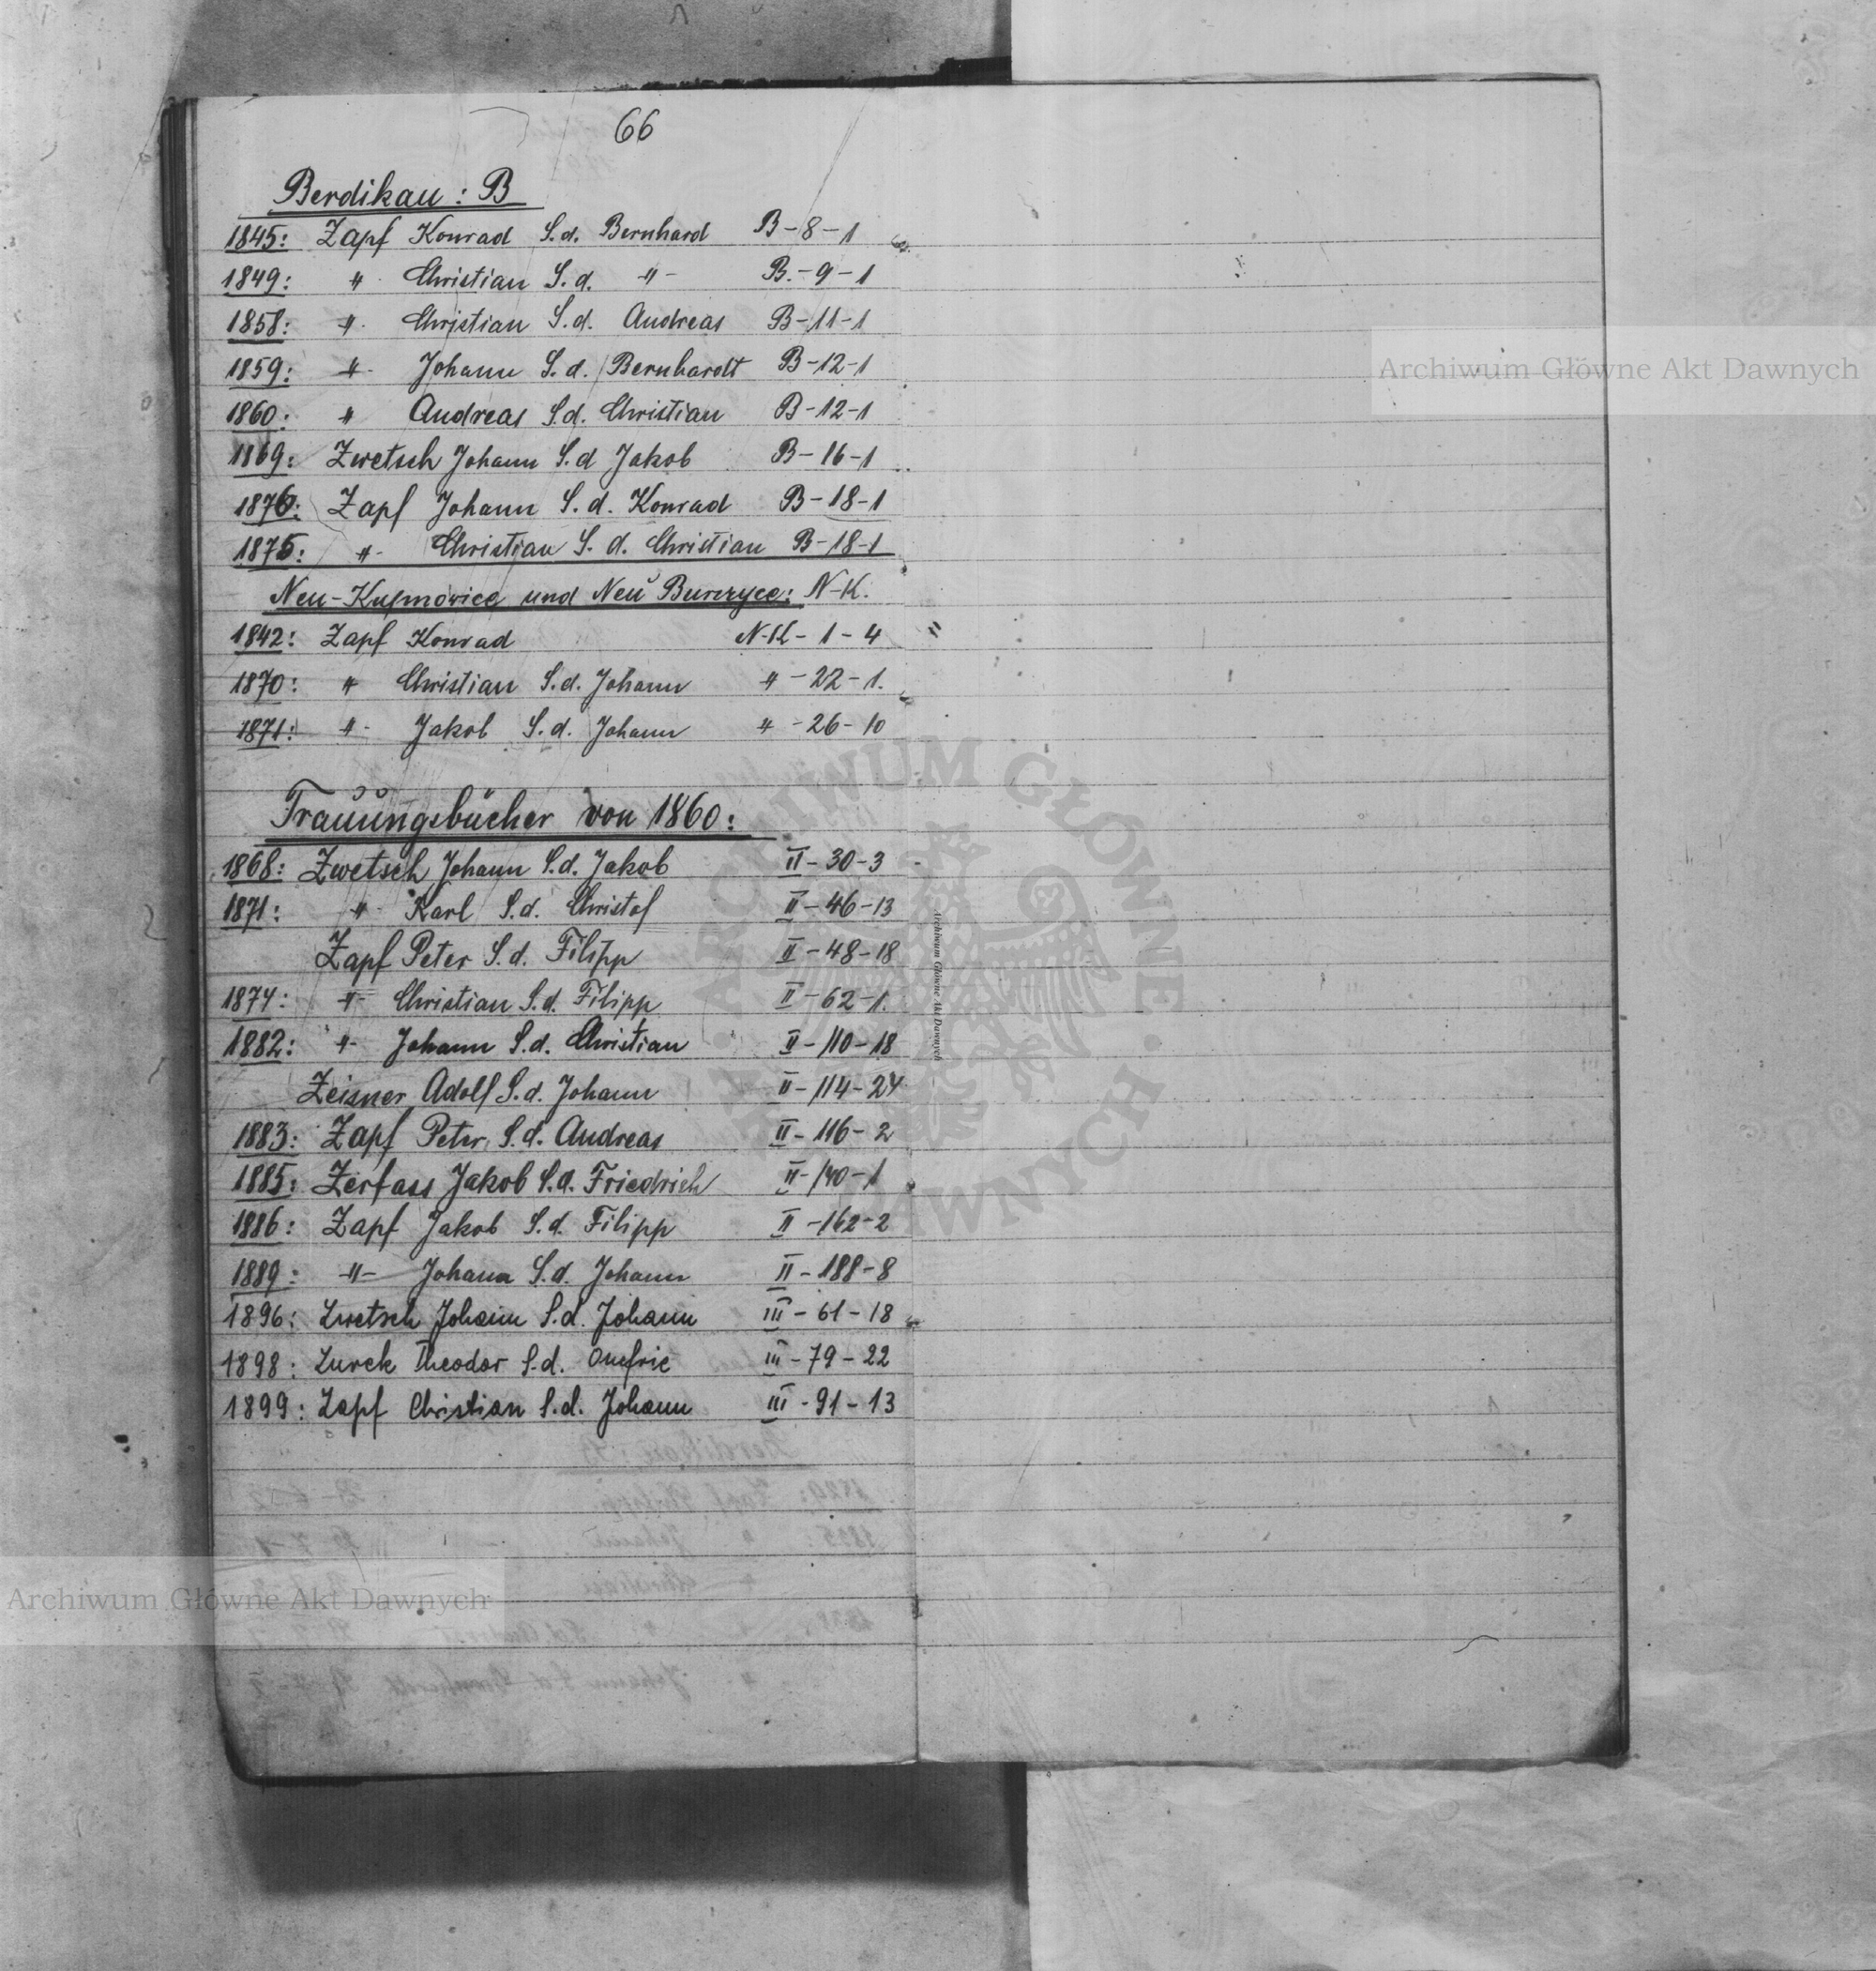 66
Berdikau : B
1845: Zapf Konrad S.d. Bernhard B-8-1
1849: " Christian S.d. -"- B.-9-1
1858: " Christian S.d. Andreas B-11-1
1859: " Johann S.d. Bernhardt B-12-1
1860: " Andreas S.d. Christian B-12-1
1869: Zwetsch Johann S.d Jakob B-16-1
1876: Zapf Johann S.d. Konrad B-18-1
1875: " Christian S.d. Christian B-18-1
Neu-Kupnowice und Neu Burczyce: N-K.
1842: Zapf Konrad N-K-1-4
1870: " Christian S.d. Johann " -22-1.
1871: " Jakob S.d. Johann " -26-10
Trauungsbücher von 1860:
1868: Zwetsch Johann S.d. Jakob II-30-3
1871: " Karl S.d. Christof II-46-13
Zapf Peter S.d. Filipp II-48-18
1874: " Christian S.d. Filipp II-62-1.
1882: " Johann S.d. Christian II-110-18
Zeisner Adolf S.d. Johann II-114-24
1883: Zapf Peter S.d. Andreas II-116-2
1885: Zerfass Jakob S.d. Friedrich II-140-1
1886: Zapf Jakob S.d. Filipp II-162-2
1889: -"- Johann S.d. Johann II-188-8
1896: Zwetsch Johann S.d. Johann III-61-18
1898: Zurek Theodor S.d. Onufrie III-79-22
1899: Zapf Christian S.d. Johann III-91-13
Archiwum Główne Akt Dawnych
ARCHIWUM GŁÓWNE AKT DAWNYCH
Archiwum Główne Akt Dawnych
Archiwum Główne Akt Dawnych